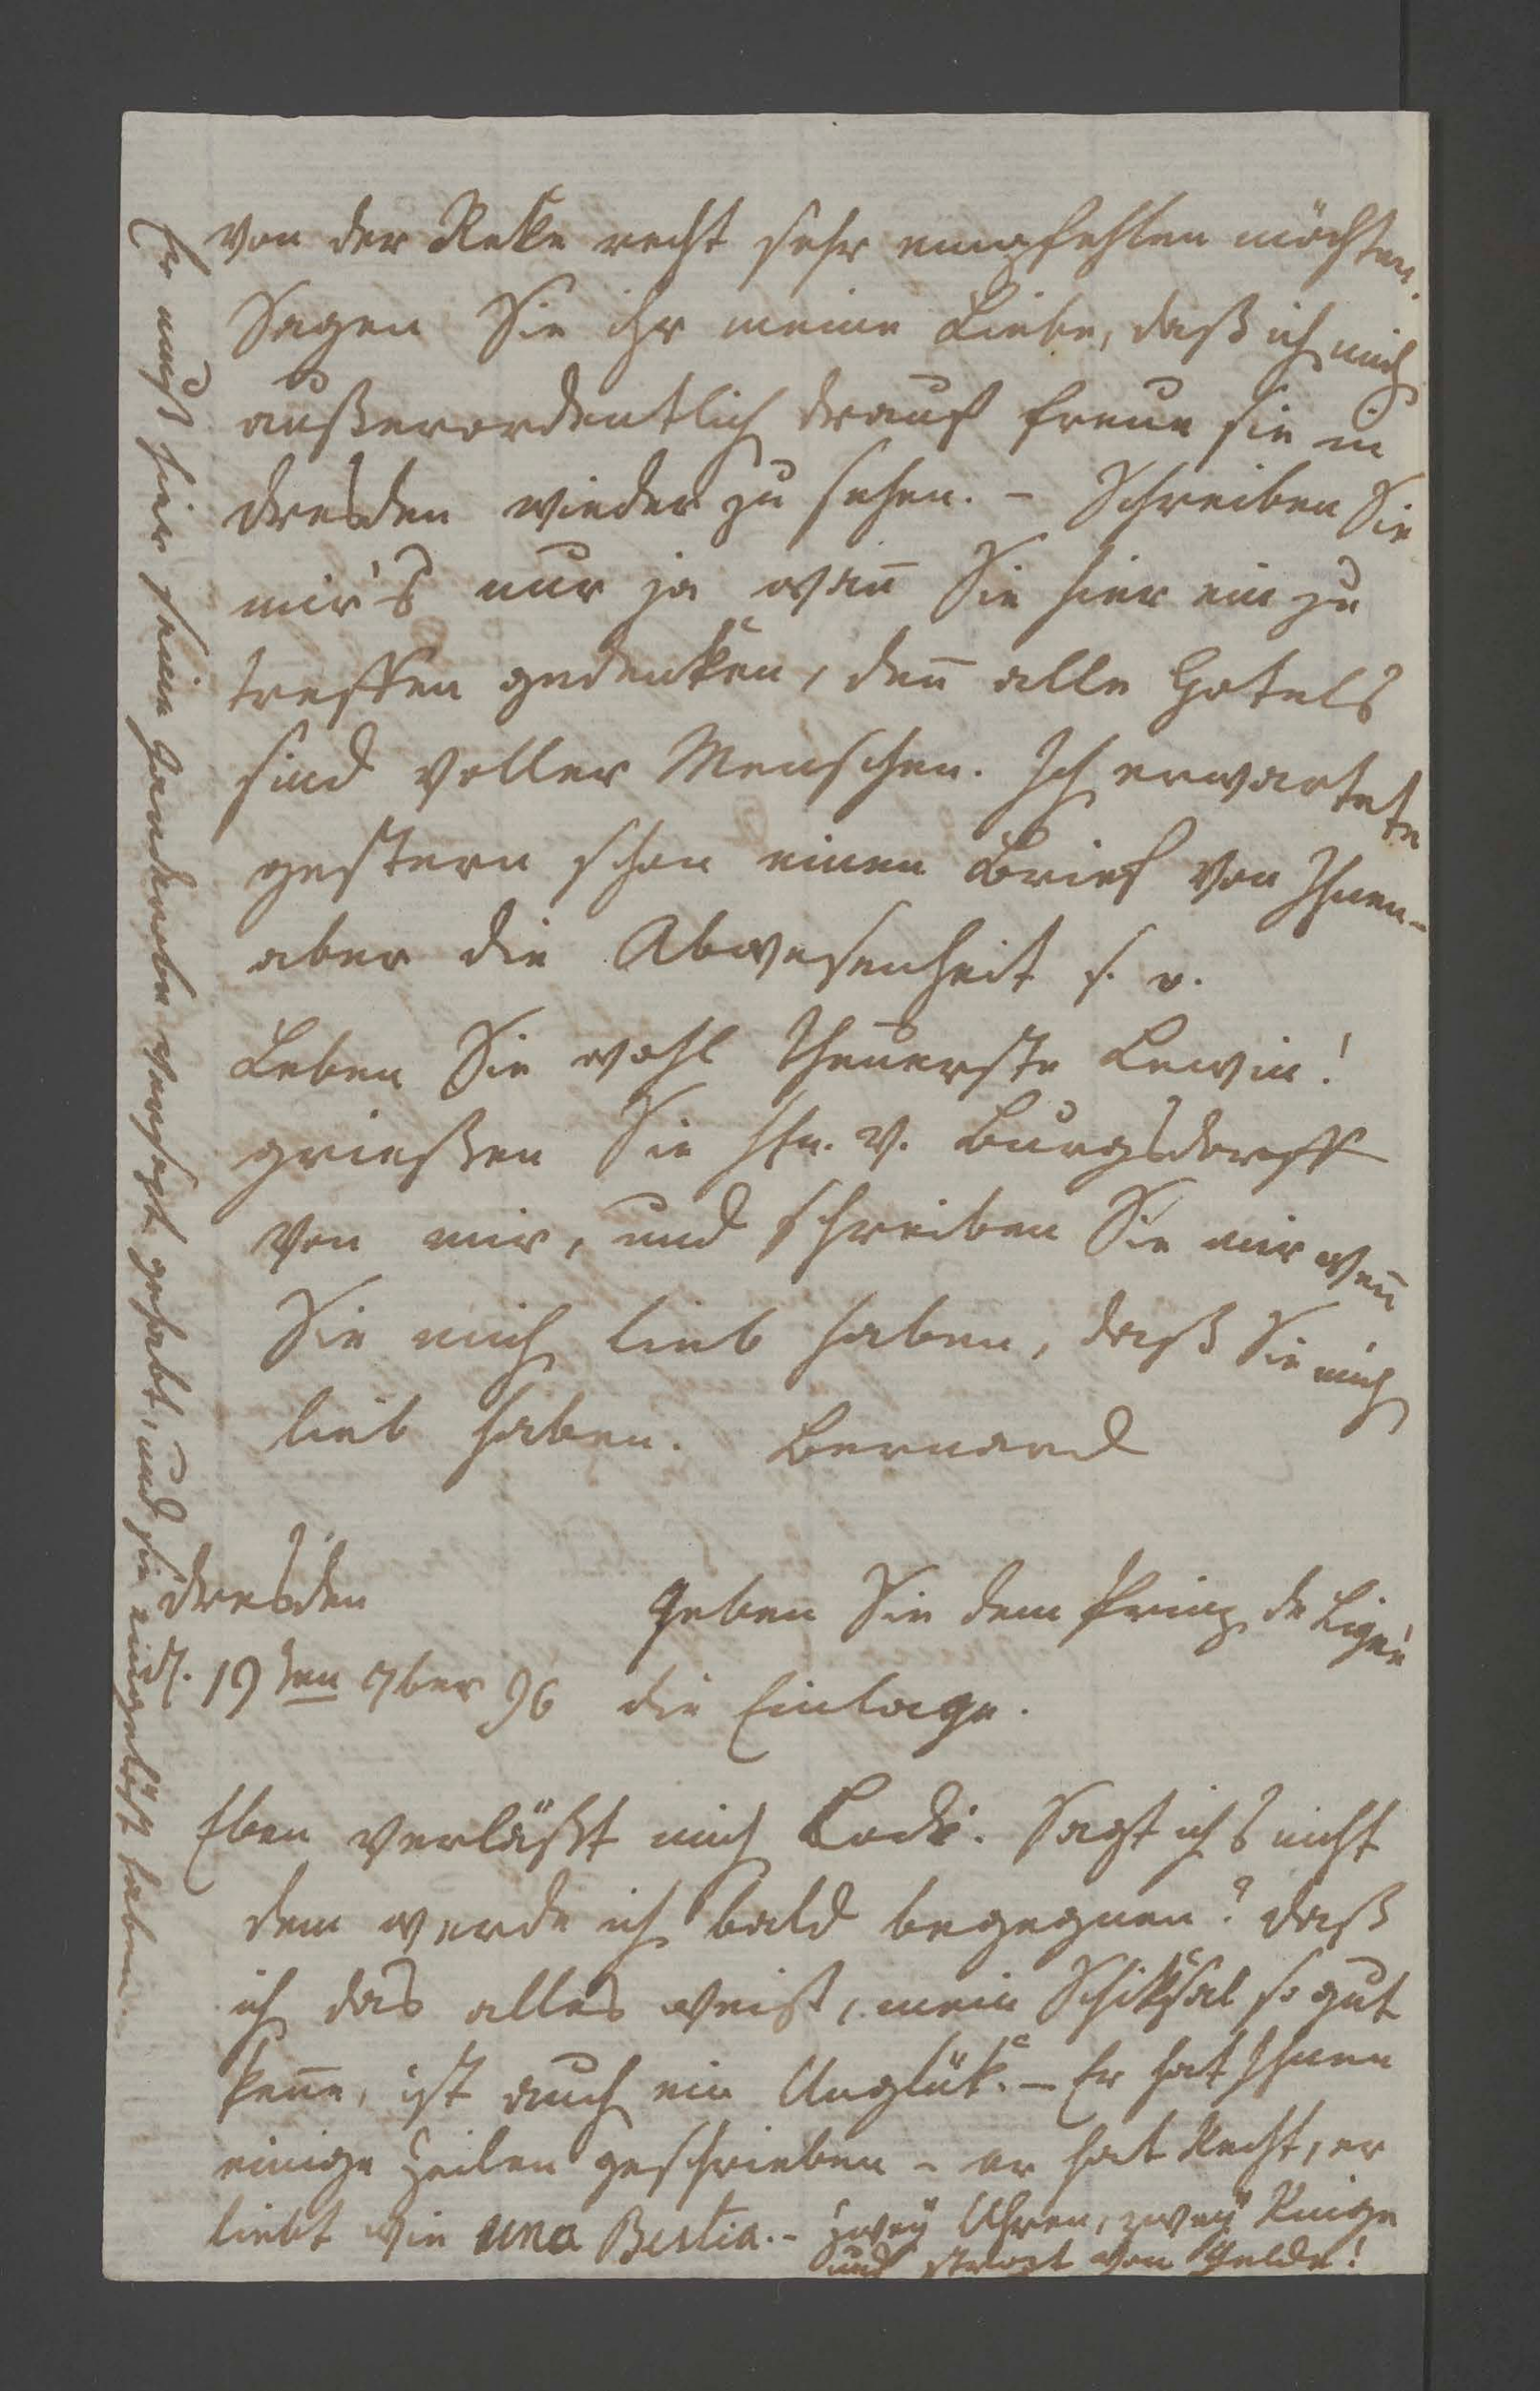 von der Reke recht sehr empfehlen möchten.
Sagen Sie ihr meine Liebe, daß ich mich
außerordentlich drauf freue sie in
dresden wieder zu sehen. – Schreiben Sie
mir's nur ja wan̄ Sie hier ein zu
treffen gedenken, den̄ alle Hotels
sind voller Menschen. Ich erwartete
gestern schon einen Brief von Ihnen –
aber die Abwesenheit
Leben Sie wohl theuerste Lewin!
grießen Sie Hn. v. Burgsdorff
von mir, und schreiben Sie mir wen̄
Sie mich lieb haben, daß Sie mich
lieb haben. Bernard
dresden
d. 19ten 7ber 96
Geben Sie dem Prinz de Ligne
die Einlage.
Eben verläßt mich Bode. Sagt ichs nicht
dem werde ich bald begegnen? daß
ich das alles weiß, mein Schiksal so gut
ken̄e, ist auch ein Unglük. – Er hat Ihnen
einige Zeilen geschrieben – er hat Recht, er
liebt wie una Bestia. – Zwey Uhren, zwey Ringe
und strozt von Gelde!
Er muß hier seine Garderobe versezt gehabt, und sie eingelößt haben.